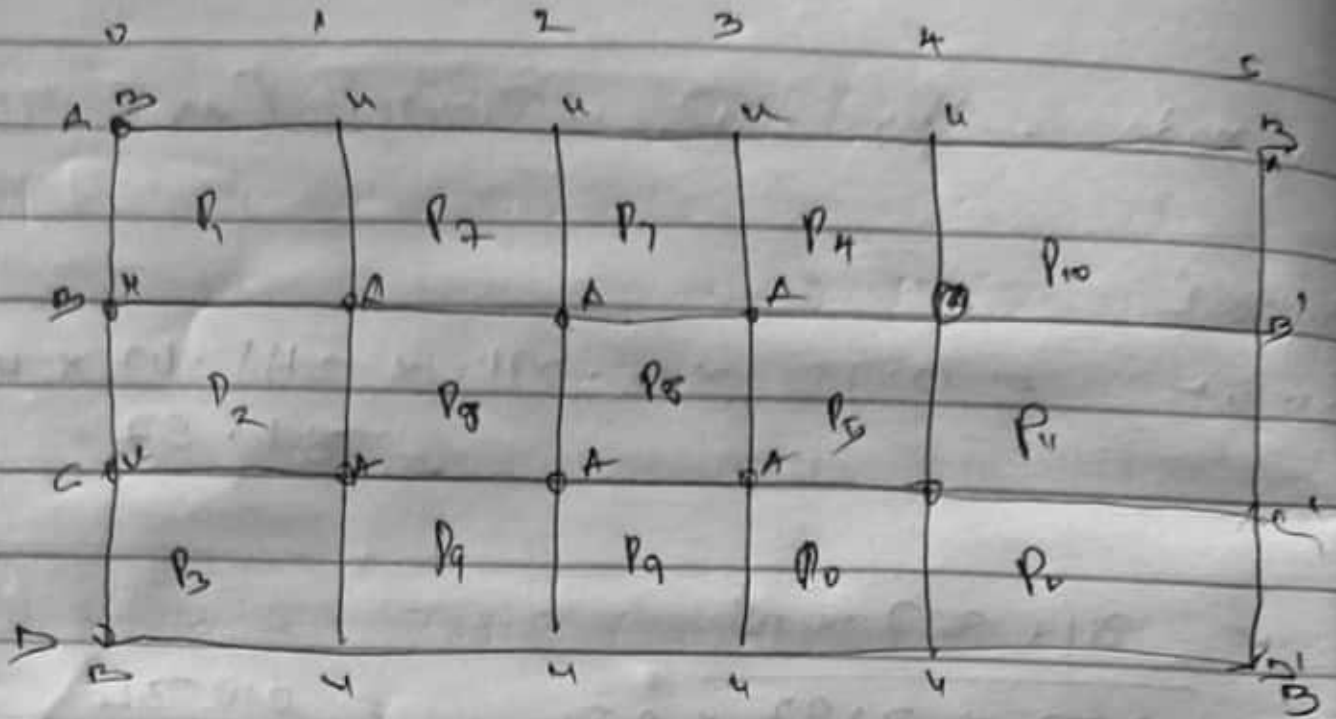 0 1 2 3 4 5
A B u u u u B
P1 P7 P7 P4 P10
B A A A B'
P2 P8 P8 P5 P11
C A A A C'
P3 P9 P9
D B 4 4 4 4 D' B